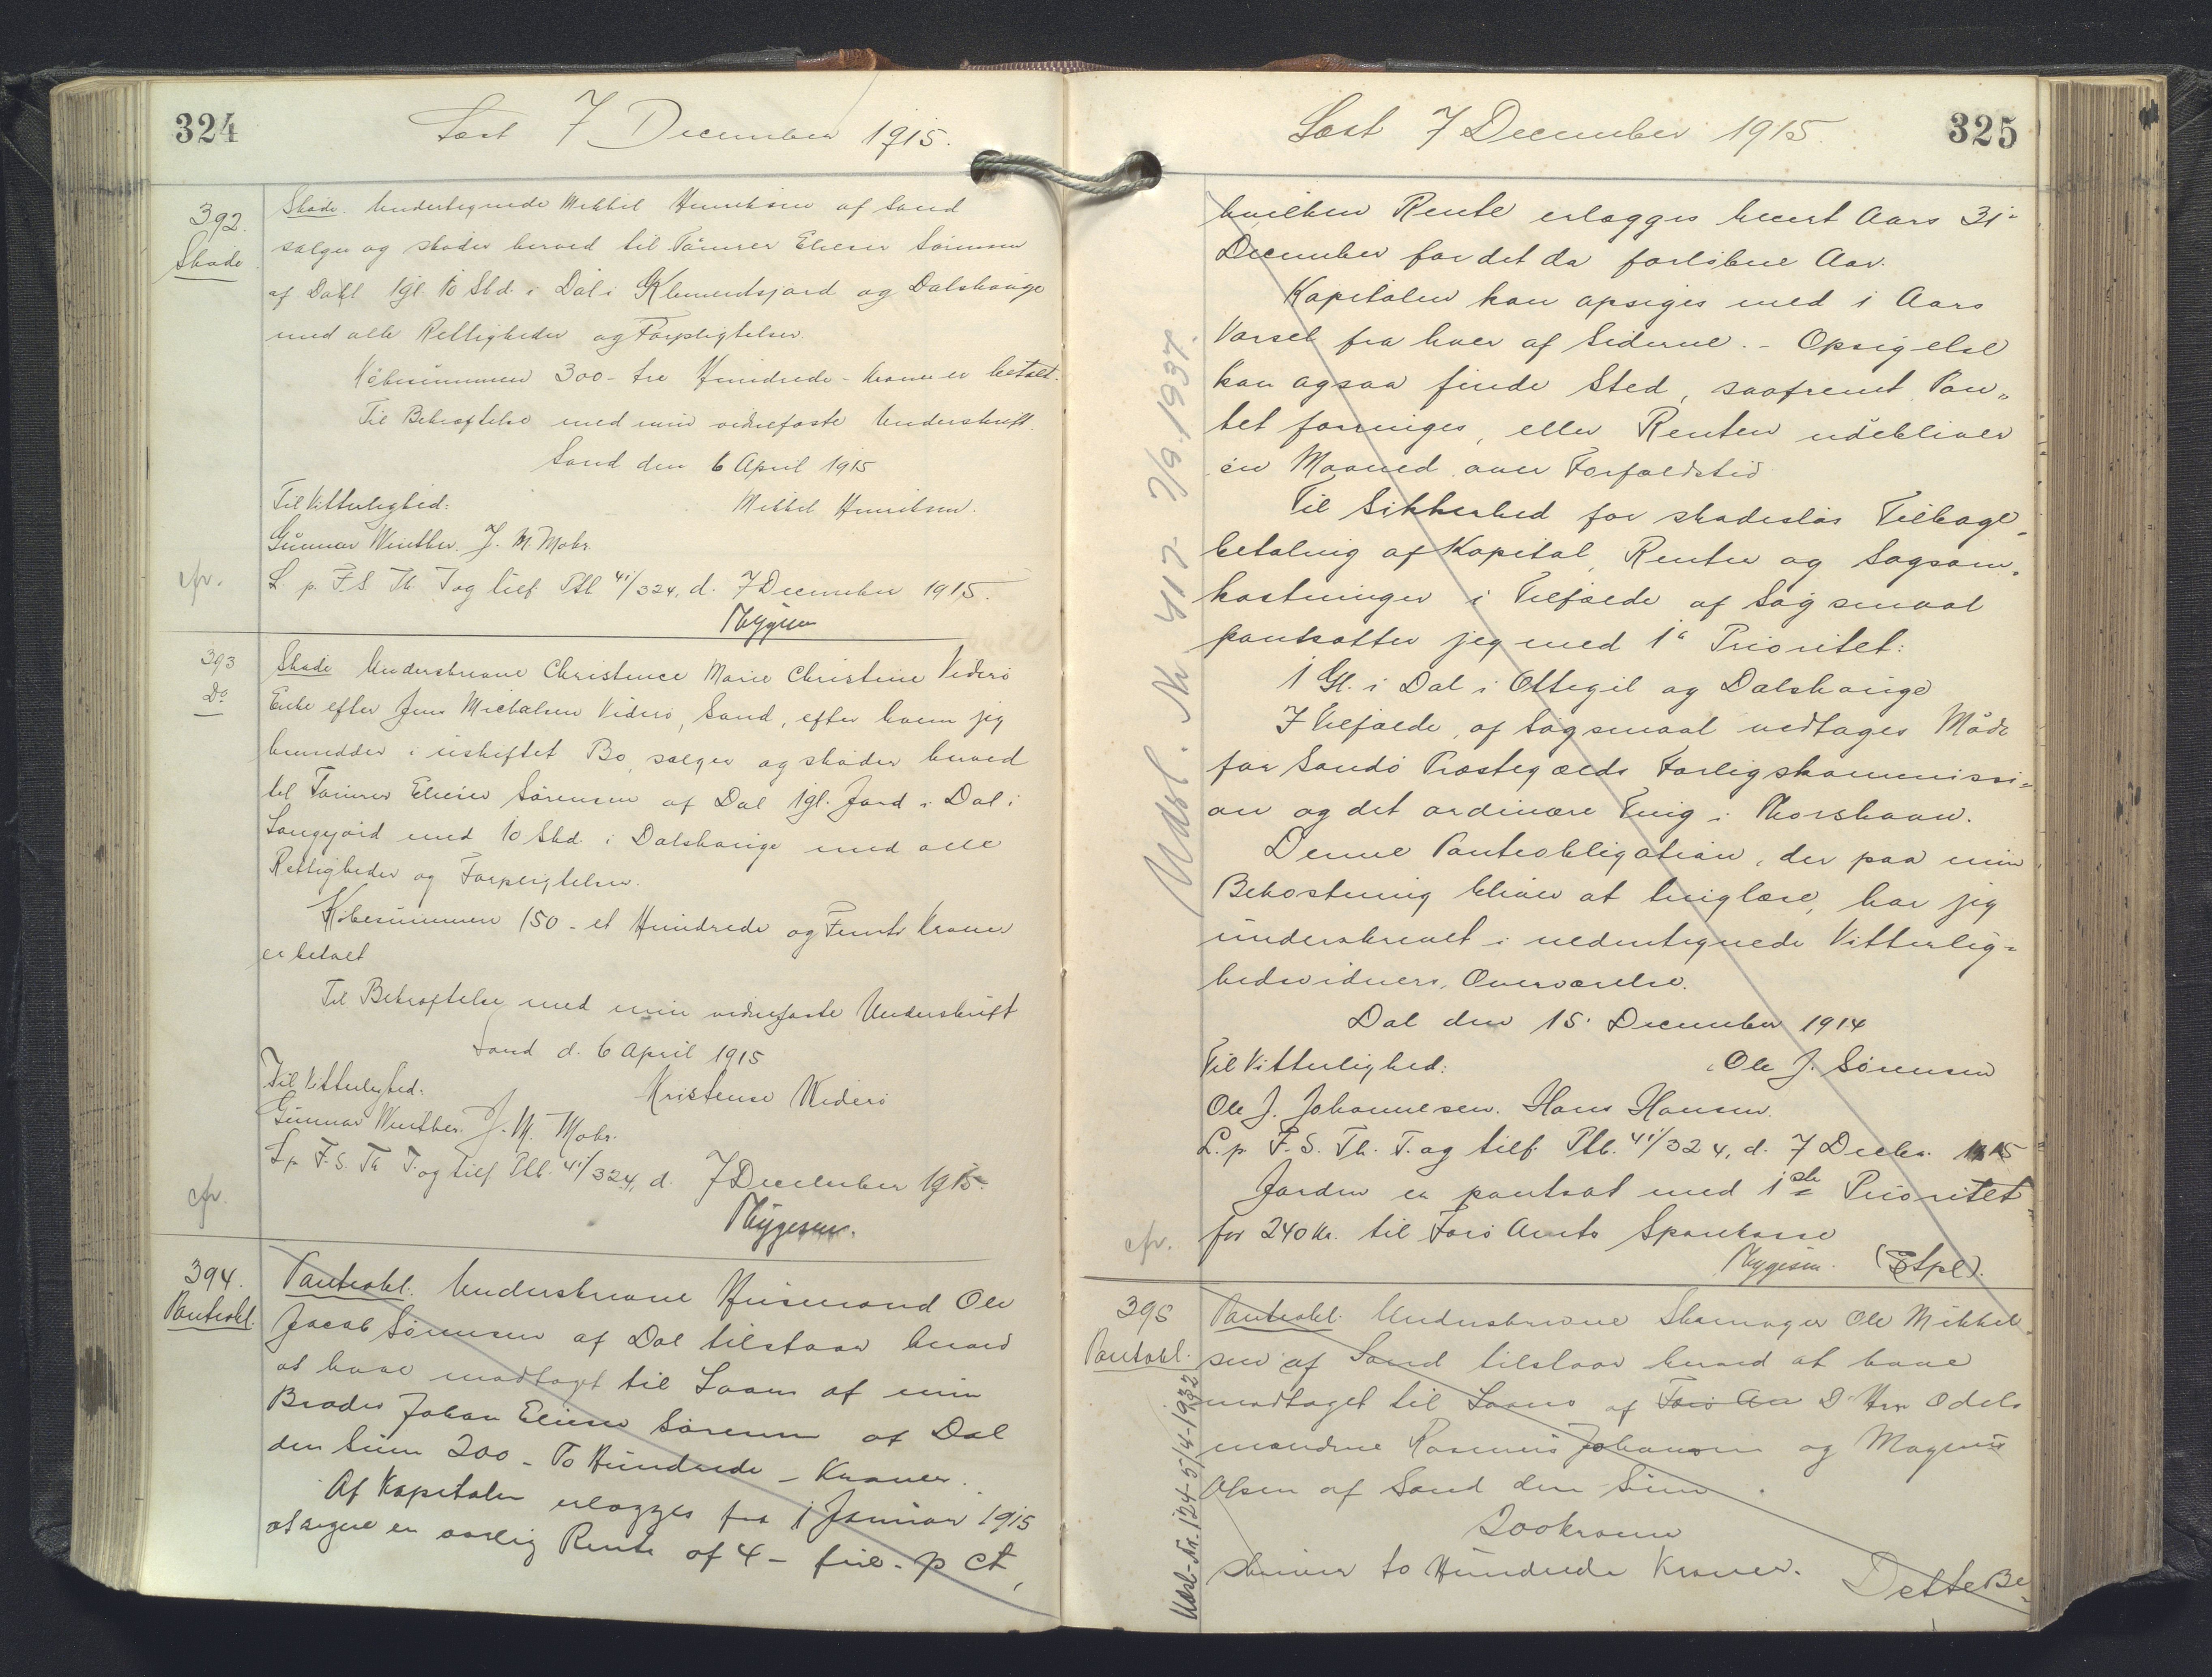 324
Læst 7 December 1915.
392.
Skøde
Skøde. Undertegnede Mikkel Henriksen af Sand
sælger og skøder herved til Tømrer Elieser Sørensen
af Dahl 1gl. 10 Skd. i Dal i Klemendsjord og Dalshauge
med alle Rettigheder og Forpligtelser.
Købesummen 300 - tre Hundrede - Kroner er betalt.
Til Bekræftelse med min vidnefaste Underskrift.
Sand den 6 April 1915
Til Vitterlighed:
Mikkel Henriksen.
Gunnar Winther. J. M. Mohr.
cfr.
L. p. F. S. Th. T og tilf Ptb 41/324, d. 7 December 1915.
Thygesen
393
Do
Skøde Underskrevne Christence Marie Christine Viderø
Enke efter Jens Michalsen Viderø, Sand, efter hvem jeg
hensidder i uskiftet Bo, sælger og skøder herved
til Tømrer Elieser Sørensen af Dal 1gl. Jord i Dal i
Langejord med 10 Skd. i Dalshauge med alle
Rettigheder og Forpligtelser.
Købesummen 150 - et Hundrede og Femti Kroner
er betalt
Til Bekræftelse med min vidnefaste Underskrift
Sand d. 6 April 1915
Til Vitterlighed:
Kristense Widerø
Gunnar Winther. J. M. Mohr.
L p F. S. Th T. og tilf Ptb. 41/324, d. 7 December 1915.
cfr.
Thygesen.
394.
Panteobl.
Panteobl. Underskrevne Husmand Ole
Jacob Sørensen af Dal tilstaar herved
at have modtaget til Laans af min
Broder Johan Elieser Sørensen af Dal
den Sum 200 - To Hundrede - Kroner.
Af Kapitalen erlægges fra 1 Januar 1915
at regne en aarlig Rente af 4 - fire - p Ct,
325
Læst 7 December 1915.
hvilken Rente erlægges hvert Aars 31-
December for det da forløbne Aar.
Kapitalen kan opsiges med 1 Aars
Varsel fra hver af Siderne. - Opsigelse
kan ogsaa finde Sted, saafremt Pan„
tet forringes, eller Renten udebliver
en Maaned over Forfaldstid
Til Sikkerhed for skadesløs Tilbage„
betaling af Kapital, Renter og Sagsom„
kostninger i Tilfælde af Søgsmaal
pantsætter jeg med 1ª Prioritet:
1 Gl. i Dal i Ottegil og Dalshauge
I Tilfælde af Søgsmaal vedtages Møde
for Sandø Præstegælds Forligskommissi=
on og det ordinære Ting i Thorshavn.
Denne Panteobligation, der paa min
Bekostning bliver at tinglæse, har jeg
underskrevet i nedentegnede Vitterlig=
hedsvidners Overværelse.
Dal den 15. December 1914
Til Vitterlighed:
Ole J. Sørensen
Ole J. Johannesen. Hans Hansen.
L. p. F. S. Th. T. og tilf. Ptb. 41/324, d. 7 Decbr. 1915
Jorden er pantsat med 1ste Prioritet
cfr.
for 240 Kr. til Færø Amts Sparekasse
Thygesen. (Stpl).
Udsl. Nr 417 7/9. 1937.
395
Panteobl.
Panteobl. Underskrevne Skomager Ole Mikkel„
sen af Sand tilstaar herved at have
modtaget til Laans af Færø Am D Hrr Odels
mændene Rasmus Johansen og Magnus
Olsen af Sand den Sum
200 Kroner
skriver to Hundrede Kroner. Dette Be„
Udsl-Nr. 124-5/4-1932